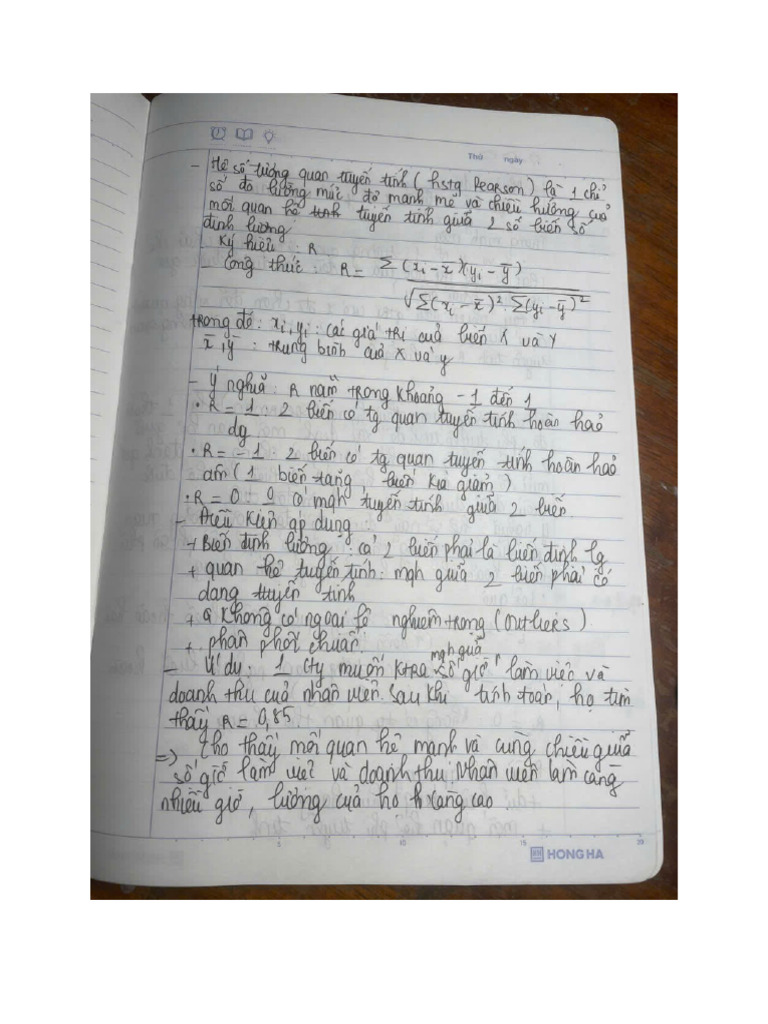 Thứ ngày
- Hệ số tương quan tuyến tính (hstq Pearson) là 1 chỉ
số đo lường mức độ mạnh mẽ và chiều hướng của
mối quan hệ tuyến tính giữa 2 số biến số
định lượng
- Ký hiệu : R
- Công thức : R = Σ(xi - x̄)(yi - ȳ) / √Σ(xi - x̄)² . Σ(yi - ȳ)²
trong đó : xi, yi : các giá trị của biến X và Y
x̄, ȳ : trung bình của X và y
- Ý nghĩa : R nằm trong khoảng -1 đến 1
• R = 1 2 biến có tg quan tuyến tính hoàn hảo
dg
• R = -1 : 2 biến có tg quan tuyến tính hoàn hảo
âm ( 1 biến tăng, biến kia giảm )
• R = 0 : 0 có mqh tuyến tính giữa 2 biến.
- Điều kiện áp dụng :
+ Biến định lượng : cả 2 biến phải là biến định lg
+ quan hệ tuyến tính : mqh giữa 2 biến phải có
dạng tuyến tính
+ không có ngoại lệ nghiêm trọng (outliers)
+ phân phối chuẩn.
- Ví dụ : 1 cty muốn ktra mqh giữa "số giờ" làm việc và
doanh thu của nhân viên. Sau khi tính toán, họ tìm
thấy R = 0,85
=> Cho thấy mối quan hệ mạnh và cùng chiều giữa
số giờ làm việc và doanh thu, nhân viên làm càng
nhiều giờ, lương của họ càng cao
5 10 15 20
HONG HA